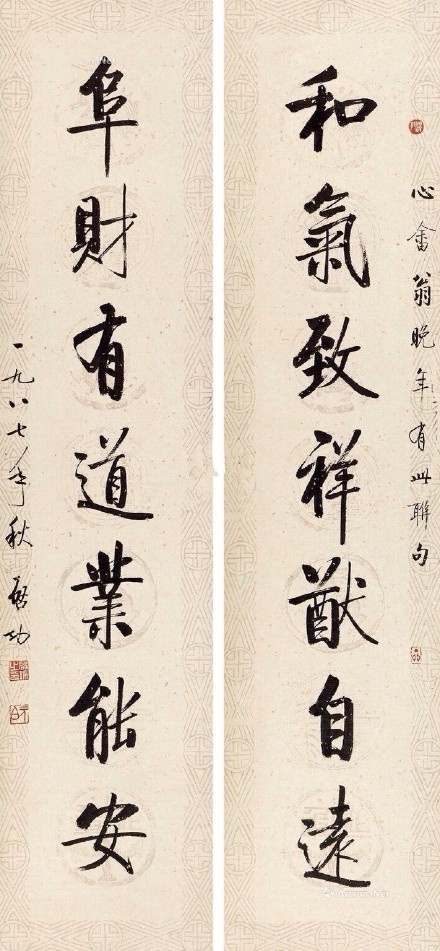 心畬翁晚年有此聯句
和氣致祥猷自遠
阜財有道業能安
一九八七年秋 啓功